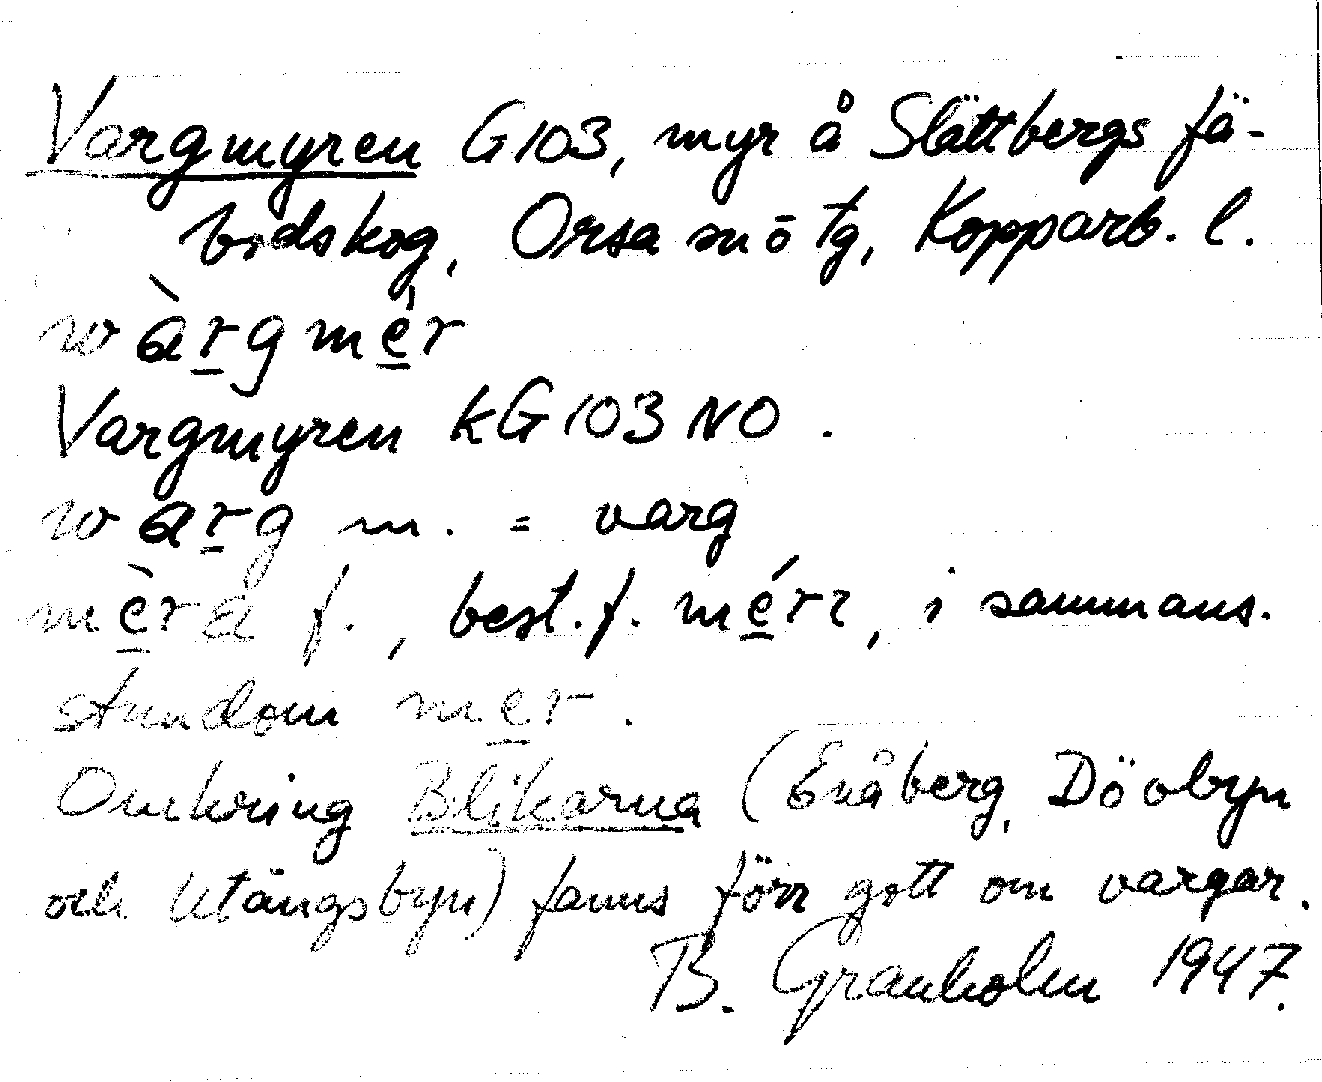 Vargmyren G103, myr å Slättbergs fä-
bodskog, Orsa sn ö tg, Kopparb. l.
wàrgmér
Vargmyren kG103 NO.
warg m. = varg
mèra f., best.f. mérr, i sammans.
stundom mer.
Omkring Blikarna (Enåberg, Dövbyn
och Utängsbyn) fanns förr gott om vargar.
B. Granholm 1947.